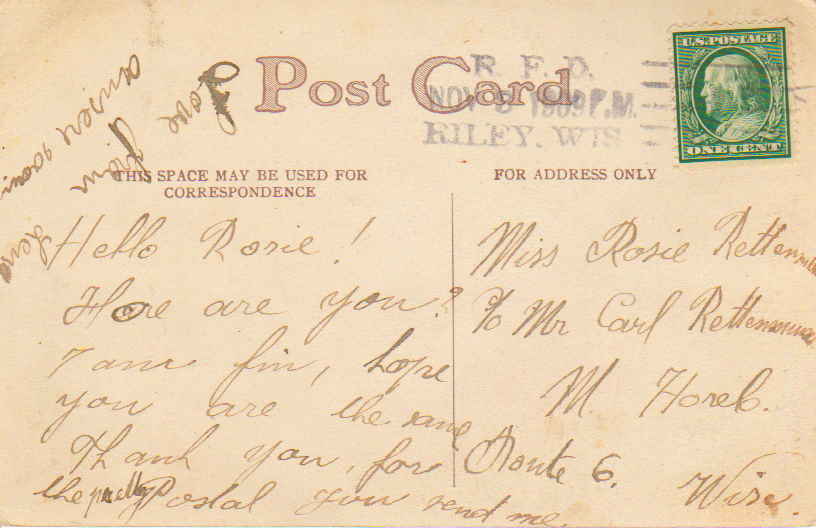 Post Card
R. F. D.
NOV 1909 P.M.
RILEY, WIS.
U.S. POSTAGE
ONE CENT
THIS SPACE MAY BE USED FOR
CORRESPONDENCE
FOR ADDRESS ONLY
Hello Rosie!
How are you?
I am fin, hope
you are the same
Thank you, for
the pretty Postal you send me.
Love from
answer soon
Miss Rosie
c/o Mr Carl
M. Horeb.
Route 6.
Wise.